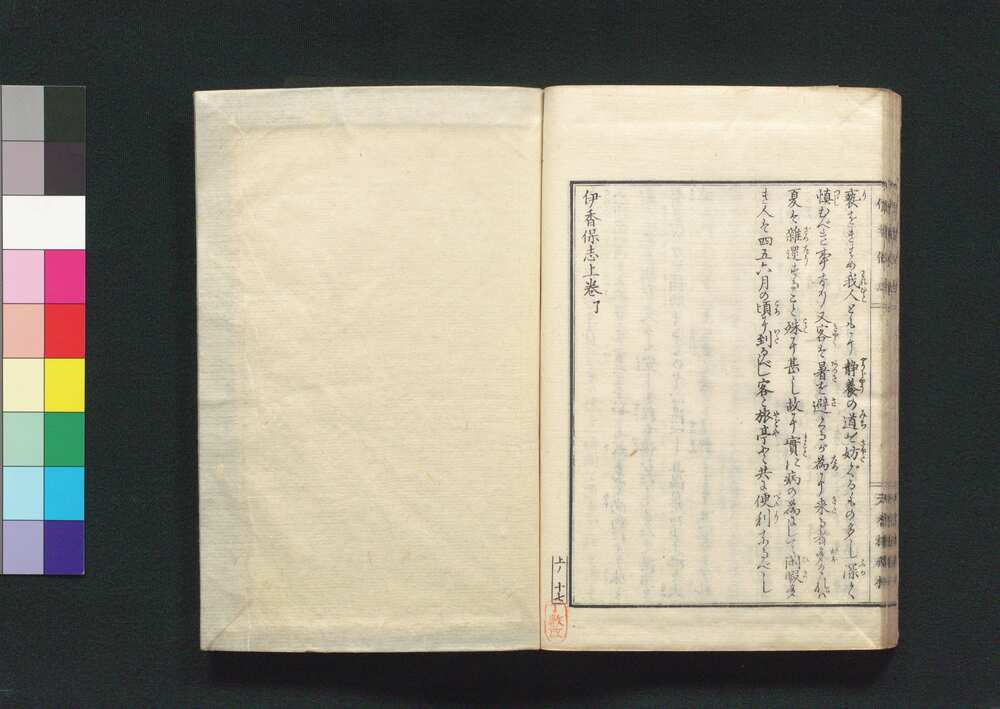 褻をきはめ我人ともに静養の道を妨ぐるもの多し深く
慎むべき事なり又客は暑を避るが為に来る者多ければ
夏は雑還すること殊に甚し故に實に病の為にして閑暇多
き人は四五六月の頃に到るべし客と旅亭と共に便利なるべし
伊香保志上巻了
上ノ十七